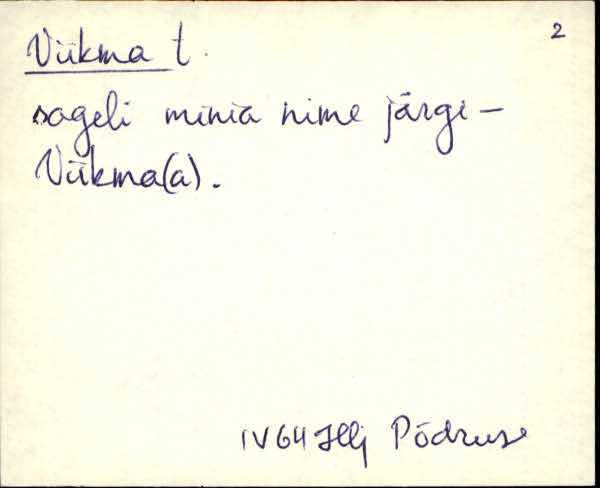 2
Viikma t.
sageli minia nime järgi –
Viikma(a).
IV 64 Hlj Põdruse